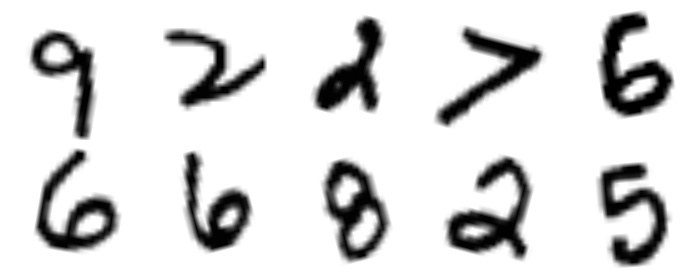 9 2 2 7 6
6 6 8 2 5